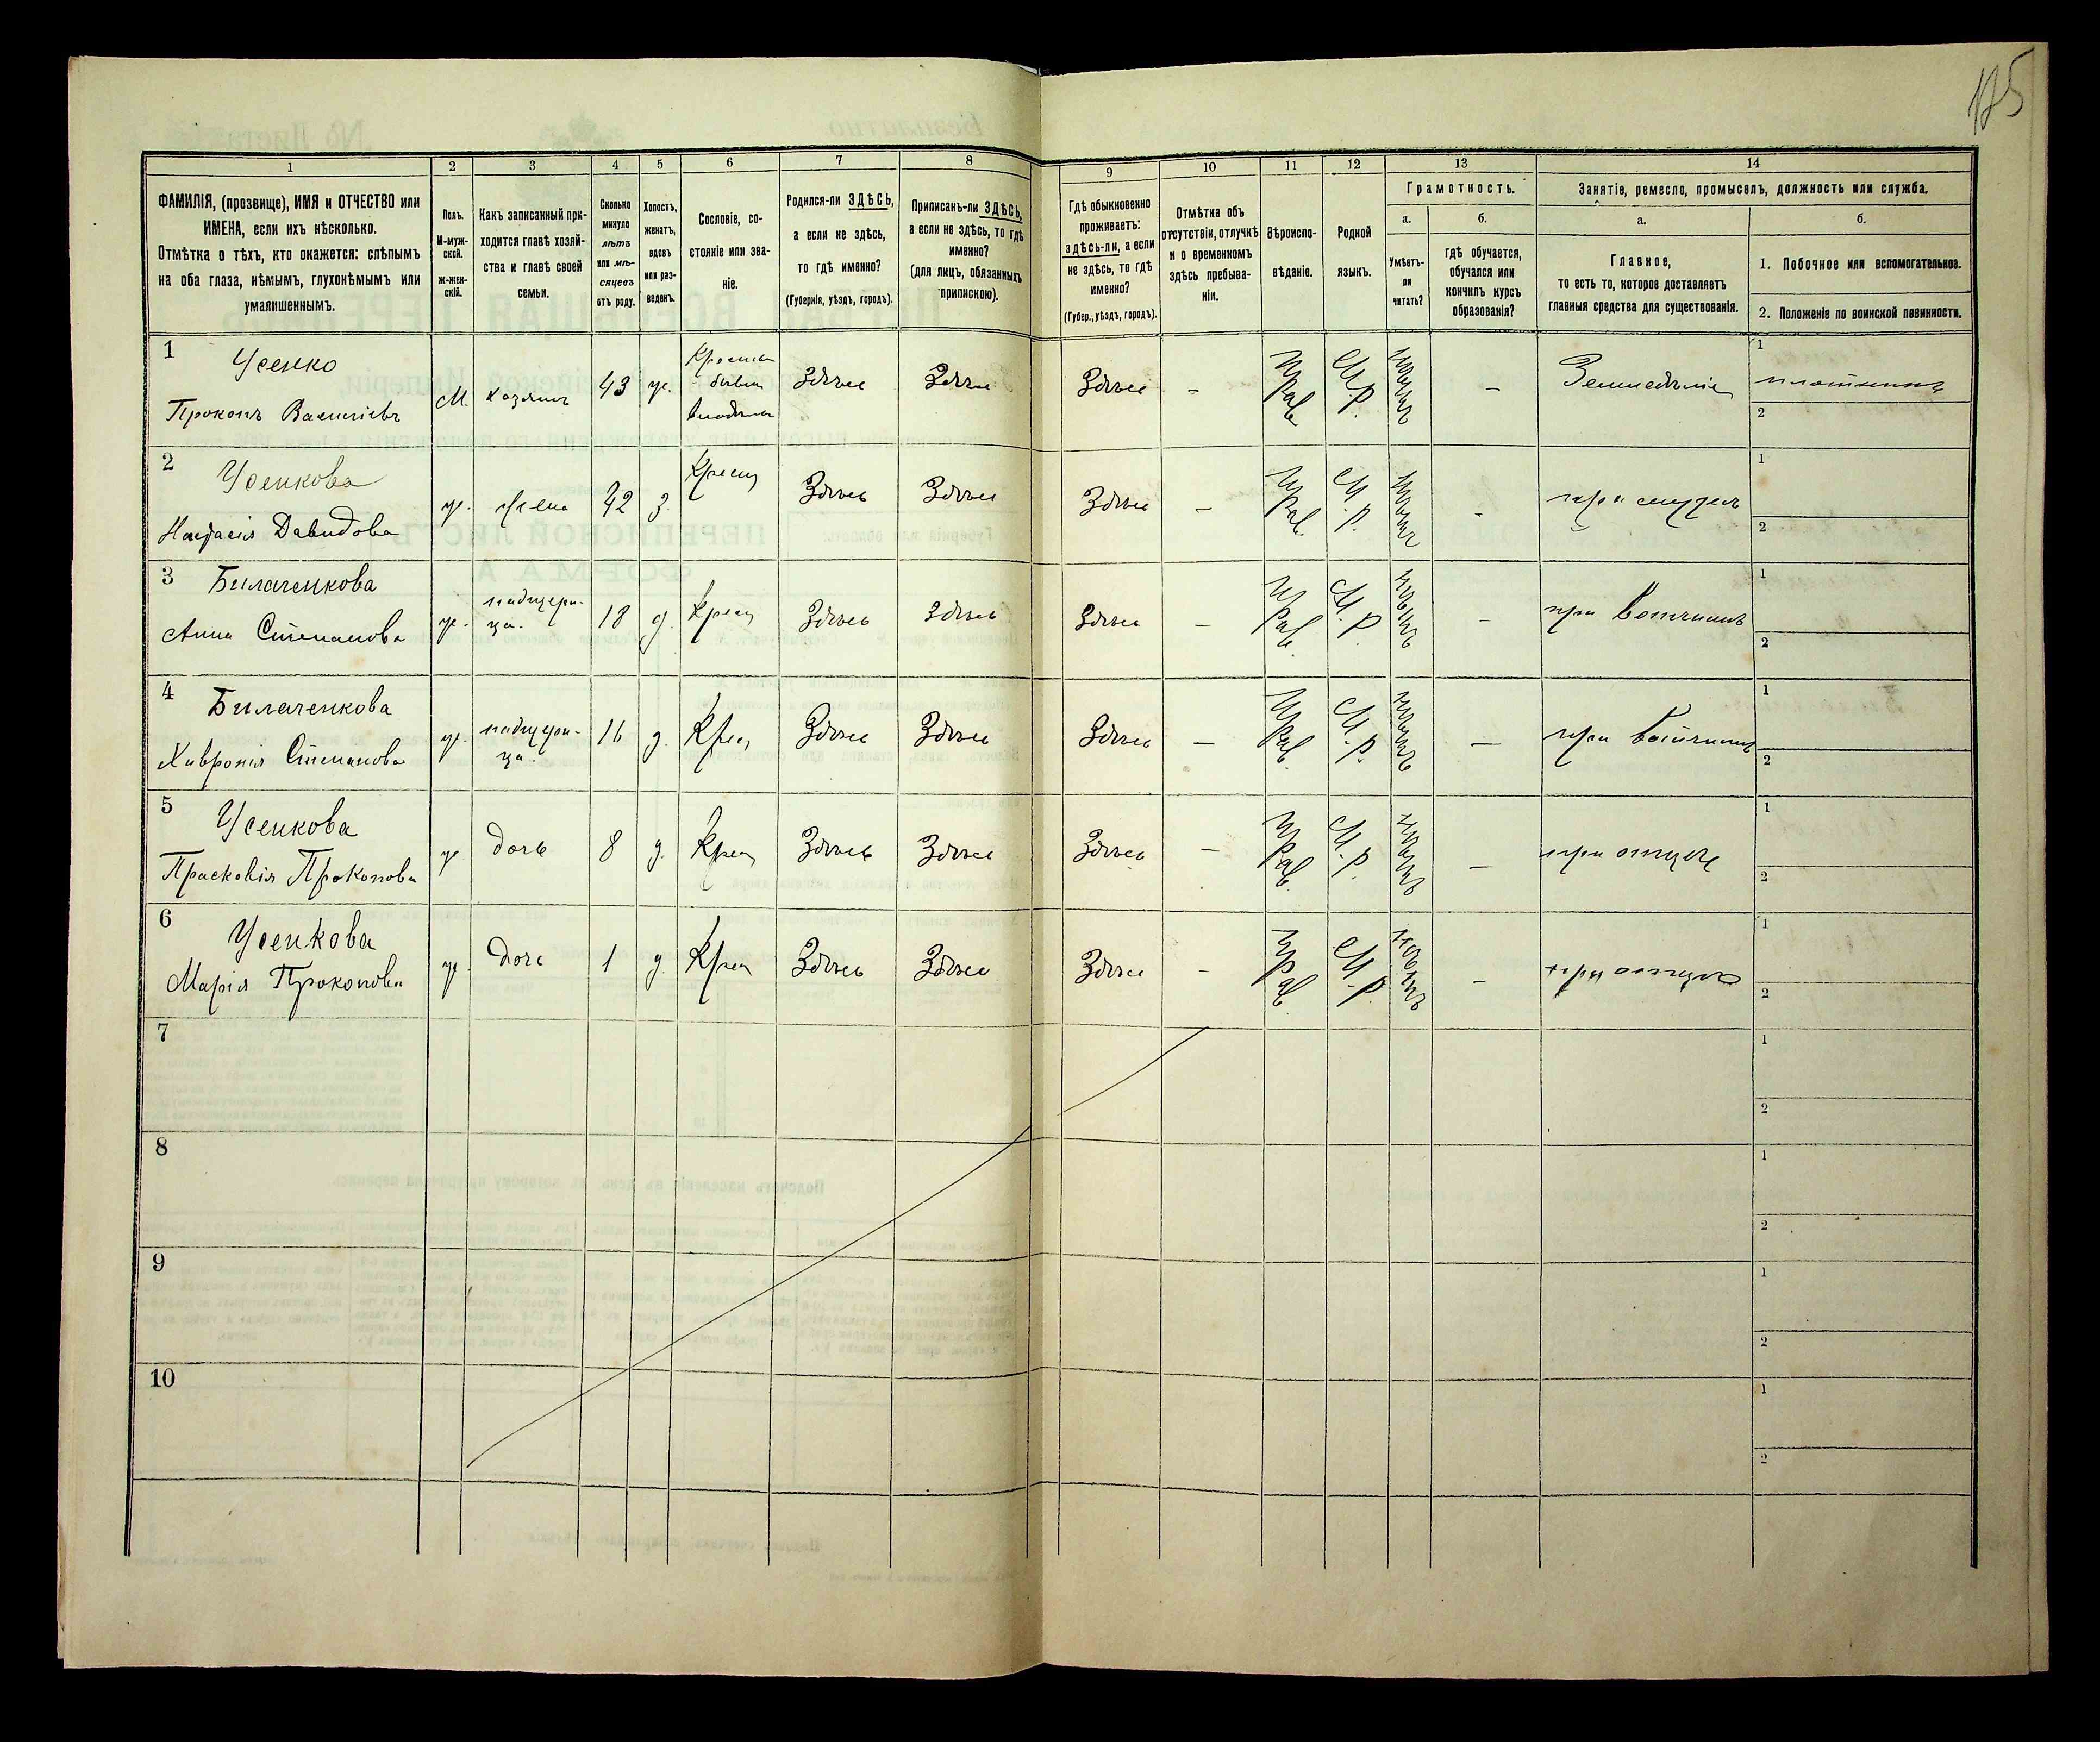 125
1
2
3
4
5
6
7
8
9
10
11
12
13
14
ФАМИЛІЯ, (прозвище), ИМЯ и ОТЧЕСТВО или
ИМЕНА, если ихъ нѣсколько.
Отмѣтка о тѣхъ, кто окажется: слѣпымъ
на оба глаза, нѣмымъ, глухонѣмымъ или
умалишеннымъ.
Полъ.
М-муж-
ской.
Ж-жен-
скій.
Какъ записанный при-
ходится главѣ хозяй-
ства и главѣ своей
семьи.
Сколько
минуло
лѣтъ
или мѣ-
сяцевъ
отъ роду.
Холостъ,
женатъ,
вдовъ
или раз-
веденъ.
Сословіе, со-
стояніе или зва-
ніе.
Родился-ли ЗДѢСЬ,
а если не здѣсь,
то гдѣ именно?
(Губернія, уѣздъ, городъ).
Приписанъ-ли ЗДѢСЬ,
а если не здѣсь, то гдѣ
именно?
(для лицъ, обязанныхъ
припискою).
Гдѣ обыкновенно
проживаетъ:
здѣсь-ли, а если
не здѣсь, то гдѣ
именно?
(Губер., уѣздъ, городъ).
Отмѣтка объ
отсутствіи, отлучкѣ
и о временномъ
здѣсь пребыва-
ніи.
Вѣроиспо-
вѣданіе.
Родной
языкъ.
Грамотность.
а.
Умѣетъ-
ли
читать?
б.
гдѣ обучается,
обучался или
кончилъ курсъ
образованія?
Занятіе, ремесло, промыселъ, должность или служба.
а.
Главное,
то есть то, которое доставляетъ
главныя средства для существованія.
б.
1. Побочное или вспомогательное.
2. Положеніе по воинской повинности.
1 Усенко
Прокопъ Василіевъ
М. хозяинъ 43 ж. Здѣсь Здѣсь Здѣсь - Прав. М.р. - Земледѣліе
1 плотникъ
2
2 Усенкова
Настасія Давидова
ж. жена 42 з. Крест Здѣсь Здѣсь Здѣсь - Прав. М.р. -
1
2
3 Билаченкова
Анна Степанова
ж. падчери-
ца. 18 д. Крест Здѣсь Здѣсь Здѣсь - Прав. М.р. - при Вотчимѣ
1
2
4 Билаченкова
Хивронія Степанова
ж. падчери-
ца. 16 д. Крест Здѣсь Здѣсь Здѣсь - Прав. М.р. - при Вотчимѣ
1
2
5 Усенкова
Прасковія Прокопова
ж дочь 8 д. Крест Здѣсь Здѣсь Здѣсь - Прав. М.р. - при отцѣ
1
2
6 Усенкова
Марія Прокопова
ж. дочь 1 д. Крест Здѣсь Здѣсь Здѣсь - Прав. М.р. - при отцѣ
1
2
7
1
2
8
1
2
9
1
2
10
1
2